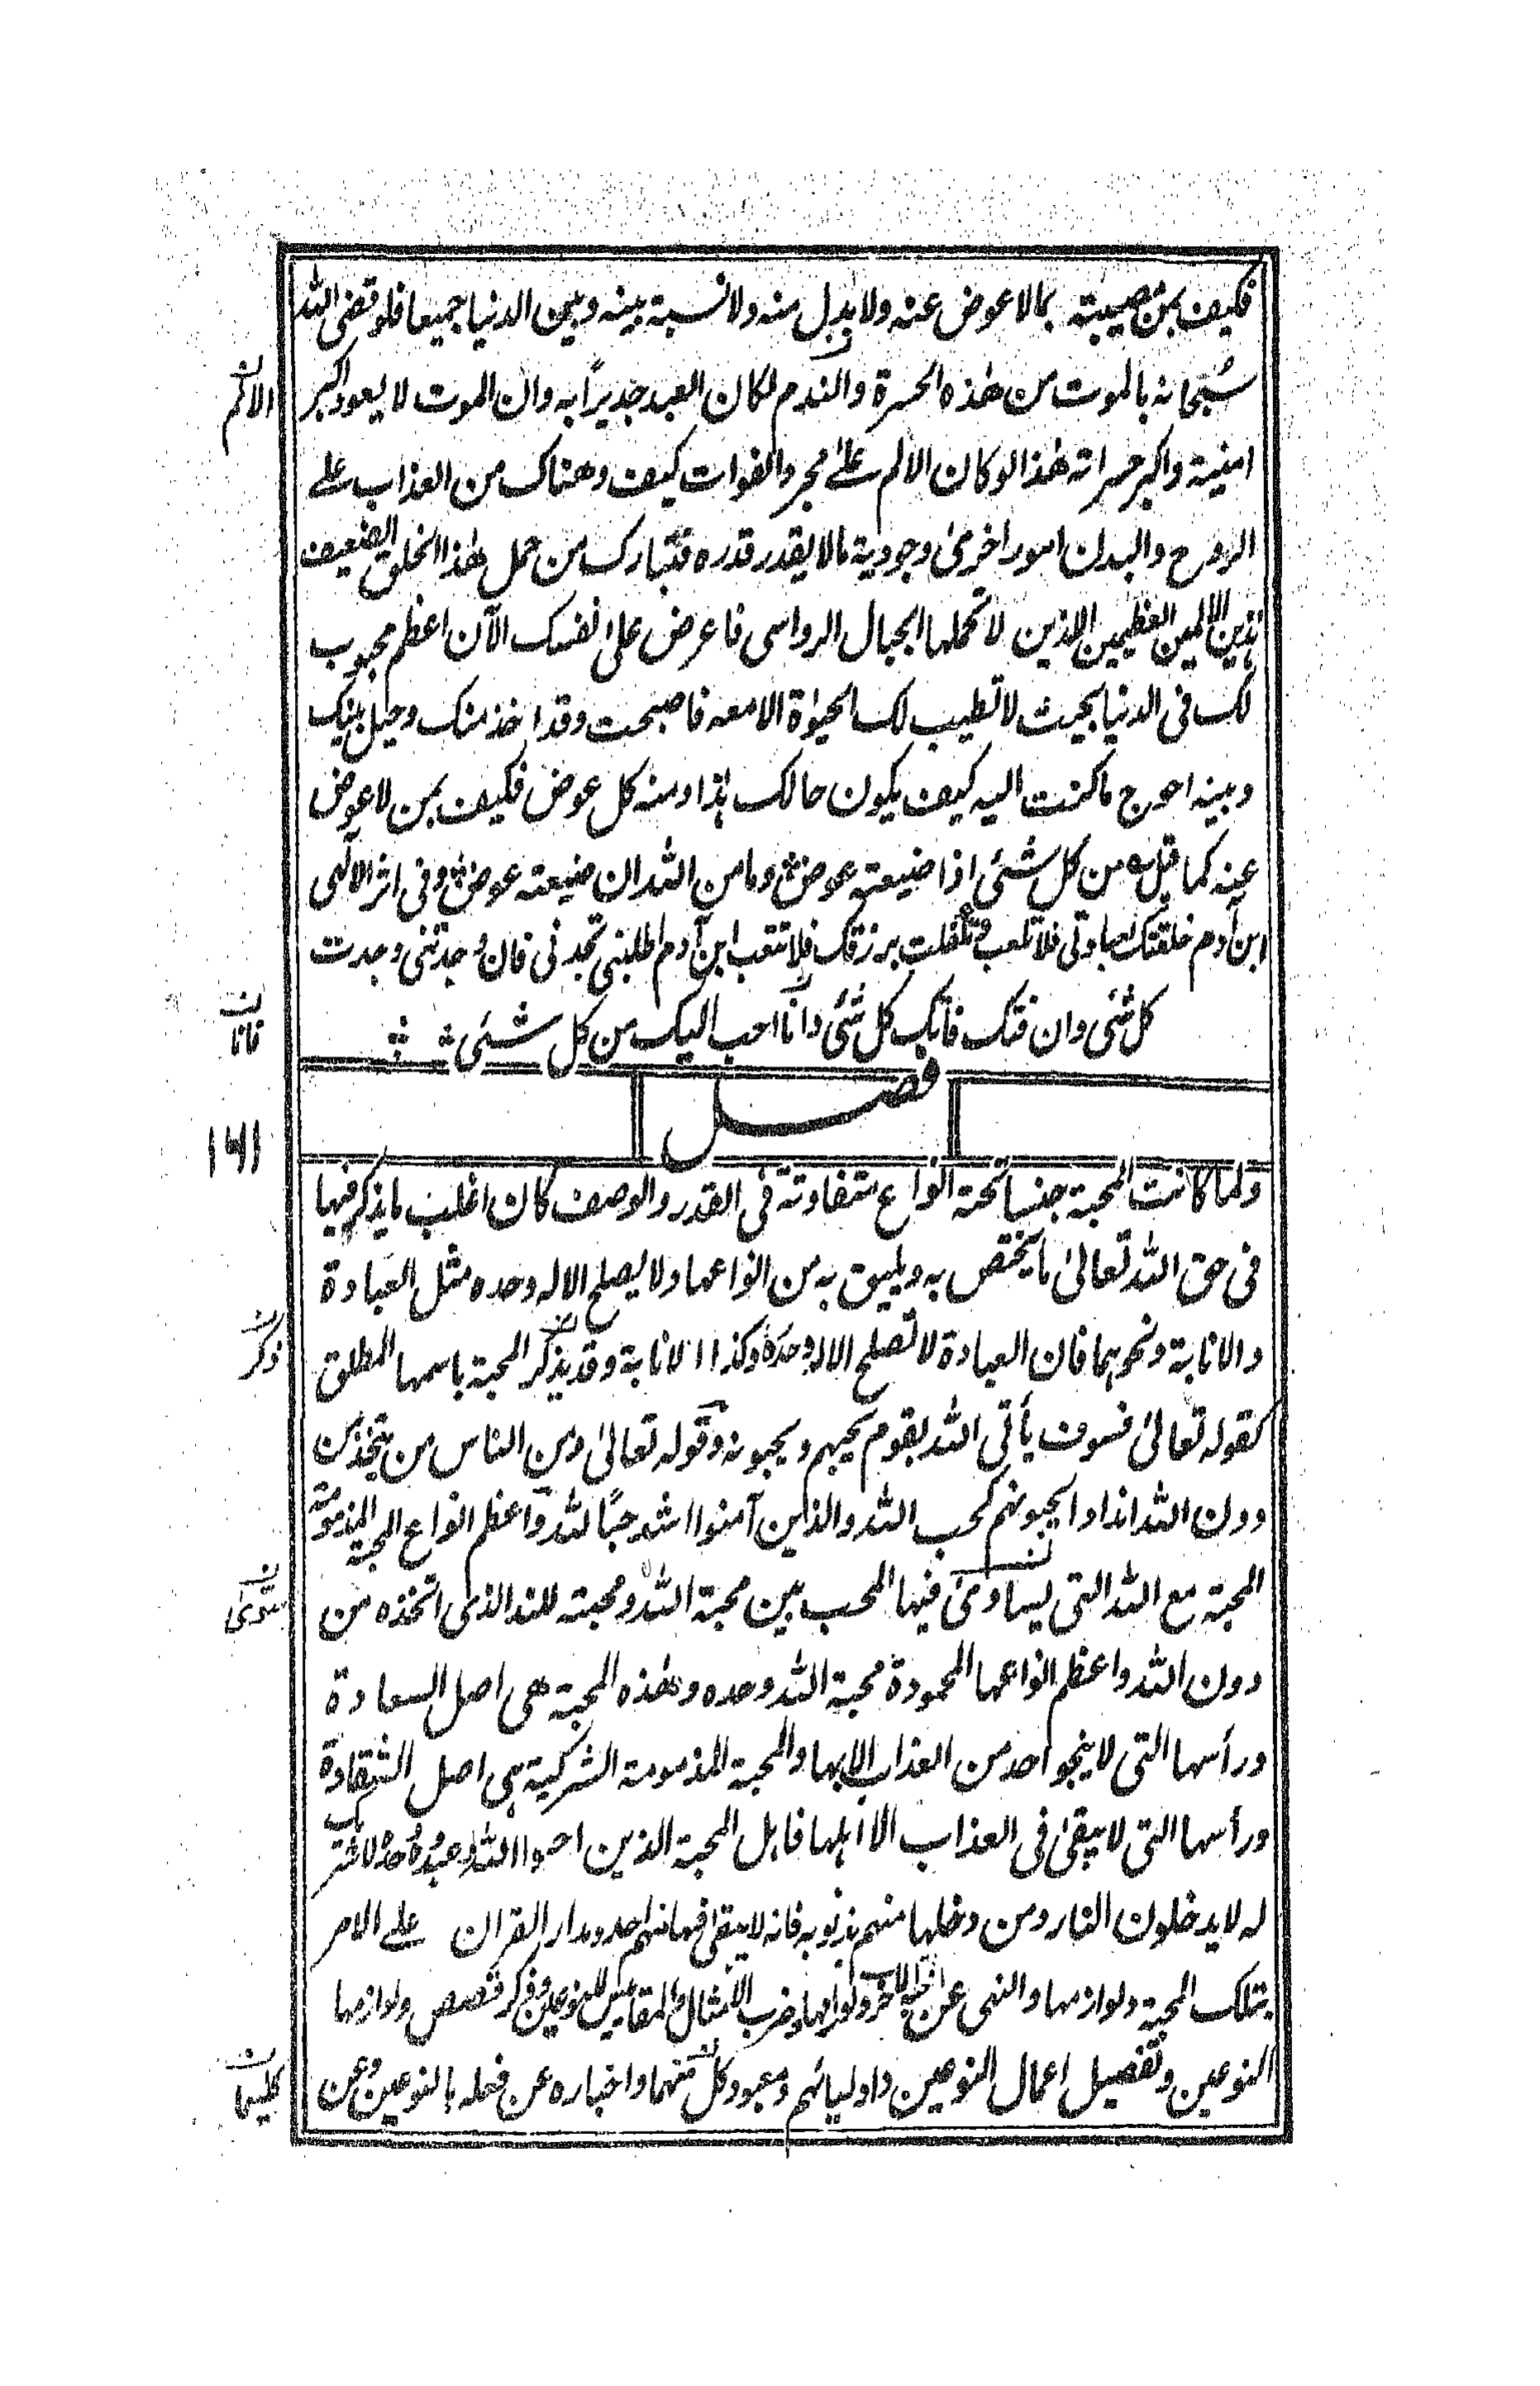 فكيف بمن مصيبته بمالا عوض عنه ولا بدل منه ولا نسبة بينه وبين الدنيا جميعا فلو قضى الله
سُبحانه بالموت من هٰذه الحسرة والندم لكان العبد جديرًا به وان الموت لا يعود اكبر
الالم
امنية واكبر حسراته هٰذا لو كان الالم علىٰ مجرد الفوات كيف وهناك من العذاب على
الروح والبدن امور اخرىٰ وجودية مالا يقدر قدره فتبارك من حمل هٰذا الخلق الضعيف
هٰذين الالمين العظيمين اللذين لا تحملها الجبال الرواسى فاعرض علىٰ نفسك الآن اعظم محبوب
لك فى الدنيا بحيث لا تطيب لك الحيوٰة الا معه فاصبحت وقد اخذ منك وحيل بينك
وبينه احوج ما كنت اليه كيف يكون حالك هٰذا ومنه كل عوض فكيف بمن لا عوض
عنه كما قيل من كل شئى اذا ضيعته عوض وما من الله ان ضيعته عوض وفى اثر الالٰهى
ابن آدم خلقتك لعبادتى فلا تلعب وتكفلت برزقك فلا تتعب ابن آدم اطلبنى تجدنى فان وجدتنى وجدت
كل شئى وان فتك فاتك كل شئى وانا احب اليك من كل شئى
فاتا
فصل
١٦١
ولما كانت المحبة جنسا تحته انواع متفاوتة فى القدر والوصف كان اغلب ما يذكر فيها
فى حق الله تعالىٰ ما يختص به ويليق به من انواعها ولا يصلح الا له وحده مثل العبادة
والانابة ونحوهما فان العبادة لا تصلح الا له وحده وكذا الانابة وقد يذكر المحبة باسمها المطلق
ذكر
كقوله تعالىٰ فسوف يأتى الله بقوم يحبهم ويحبونه وقوله تعالىٰ ومن الناس من يتخذ من
دون الله اندادا يحبونهم كحب الله والذين آمنوا اشد حبًا لله واعظم انواع المحبة المذمومة
المحبة مع الله التى يساوىٰ فيها المحب بين محبة الله ومحبته للند الذى اتخذه من
دون الله واعظم انواعها المحمودة محبة الله وحده وهٰذه المحبة هى اصل السعادة
ورأسها التى لا ينجو احد من العذاب الا بها والمحبة المذمومة الشركية هى اصل الشقاوة
ورأسها التى لا يبقىٰ فى العذاب الا اهلها فاهل المحبة الذين احبوا الله وعبدوه وحده لا شريك
له لا يدخلون النار ومن دخلها منهم بذنوبه فانه لا يبقىٰ فيها منهم احد ومدار القران على الامر
بتلك المحبة ولوازمها والنهى عن المحبة الاخر ولوازمها وضرب الامثال والمقائيس للنوعين وذكر قصص ولوازمها
النوعين وتفصيل اعمال النوعين واوليائهم ومعبود كل منهما واخباره عن فعله بالنوعين وعن